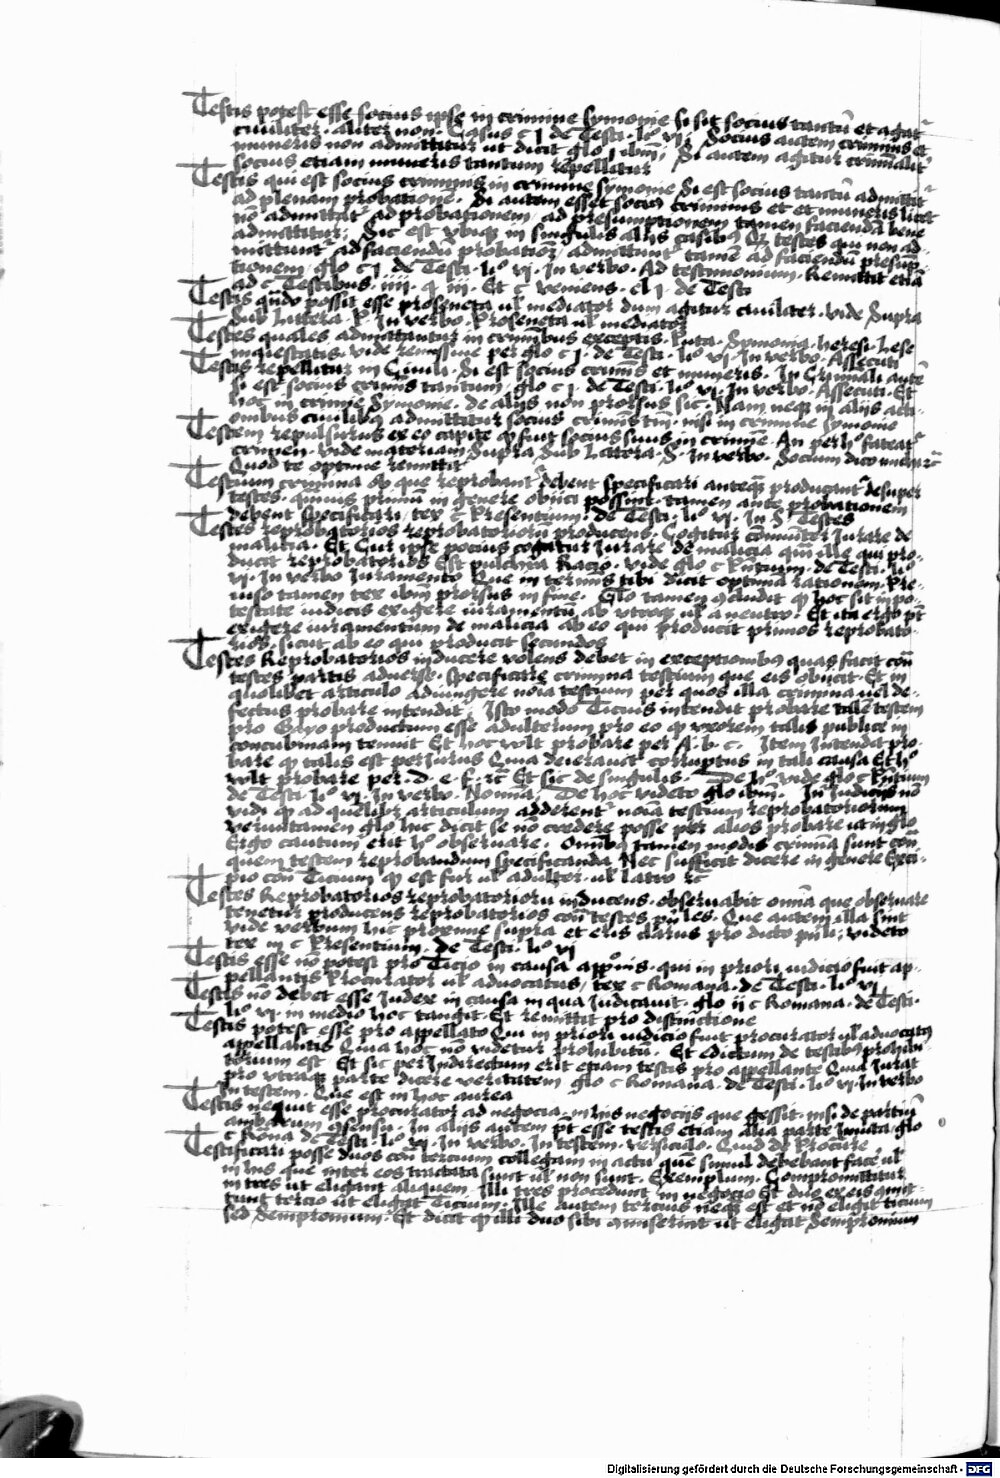 Testis potest esse socius ipse in crimine symonie si sit socius tantu et agat
ciuiliter. aliter non. Casus c j de Testi. li vi. Socius autem criminis et
muneris non admittitur ut dicit glo j ibm. Si autem agitur criminalit
socius etiam muneris tantum repellitur
Testis qui est socius criminis in crimine symonie Si est socius tantu admittit
ad plenam probatione. Si autem esset socius criminis et et muneris licet
no admittat ad probationem, ad presumptionem tamen facienda bene
admittitur; Sic est vbiqz in singulis alijs casibus Qz testes qui non ad
mittunt ad faciendu probatioz, admittunt tame ad faciendu presup
tionem glo c j. de Testi. li vi. In verbo. Ad testimonium. Remittit etia
ad c Testibus. iiij. q iij. Et c veniens. el j. de Testi
Testis qndo possit esse proseneta ul mediator dum agitur ciuiliter. vide Supra
Sub Littera. P. In verbo. Proseneta ul mediator
Testes quales admittantur in criminibus exceptis. Puta. Symonia. heresi. Lese
maiestatis. vide remissiue per glo c j. de Testi. li vi. In verbo. Assecuti
Testis repellitur in Ciuili. Si est socius criminis et muneris. In Criminali aute
Si est socius criminis tantum. glo c j. de Testi. li vi. In verbo. Assecuti. Et
hoc in crimine Symonie. de alijs non prorsus sic. Nam neqz in alijs acti
onibus ciuilibus admittitur socius criminis tm. nisi in crimine symonie
Testem repulsurus ex eo capite q fuit socius suus in crimine. An per ho fateat
crimen. vide materiam Supra Sub Littera. S. In verbo. Socium dico
Quod te optime remittit
Testium crimina ob que reprobant debent specificari anteqz producant desuper
testes. quiuis primum in genere obijci possint. tamen ante probationem
debent specificari, tex c Presentium. de Testi. li vi. In S Testes
Testes reprobatorios reprobatorioru producens. Cogitur comuniter Jurare de
malitia. Et Cur ipse pocius cogatur Jurare de malicia qm ille qui pro-
ducit reprobatorios Est pulchra Racio. vide glo c Pntium. de Testi. li
vi. In verbo Juramento Que in terminis tibi dicit optima rationem. Pre
uiso tamen tex ibm prorsus in fine. Glo tamen cludit q hoc sit in po-
testate iudicis exigere iuramentu ab vtroqz ul a neutro. Et ita ergo pt
exigere iuramentum de malicia ab eo qui producit primos reprobato-
rios sicut ab eo qui producit secundos
Testes Reprobatorios inducere volens debet in exceptionibus quas facit con
testes partis aduerse. specificare crimina testium que eis obijcit. Et in
quolibet articulo adiungere noia testium per quos illa crimina uel de-
fectus probare intendit. Isto modo Ticius intendit probare tale testem
pro Gayo productum esse adulterum pro eo q vxorem talis publice in
concubinam tenuit Et hoc vult probare per A. b. c. Item Intendit pro-
bare q talis est periurus Quia deierauit corruptus in tali causa Et ho
vult probare per. d. e. f. rc Et sic de singulis. De ho vide glo c Pntium
de Testi. li vi. In verbo. Nomina. De hoc videto glo ibm. In Judicijs no
vidi q ad quelibet articulum adderent noia testium reprobatoriorum
verumtamen glo hic dicit se no credere posse per alios probare ut in glo
Ergo cautum erit ho obseruare. Omibus tamen modis crimina sunt con
quem testem reprobandum specificanda Nec sufficit dicere in genere Exci-
pio con Ticium q est fur ul adulter. ul latro rc
Testes Reprobatorios reprobatorioru inducens. obseruabit omia que obseruare
tenetur producens reprobatorios con testes pncipales. Que autem illa sint
vide verbum hic proxime supra et eris clarus pro dicto pnli; videto
tex in c Presentium. de Testi. li vi
Testis esse no potest pro Ticio in causa apponis. qui in priori iudicio fuit ap-
pellantis Procurator ul aduocatus, tex c Romana. de Testi. li vi
Testis no debet esse Judex in causa in qua Judicauit. glo ij c Romana. de Testi.
li vi. in medio hoc tangit. Et remittit pro distinctione
Testis potest esse pro appellato Qui in priori iudicio fuit procurator ul aduocatus
appellantis Quia hoc no videtur prohibitu. Et edictum de testibus prohibi-
torium est Et sic per Indirectum erit etiam testis pro appellante Quia Jurat
pro vtraqz parte dicere veritatem glo c Romana. de Testi. li vi. In verbo
In testem. Que est in hoc aurea
Testis nequit esse procurator ad negocia in his negocijs que gessit. nisi de partiu
ambarum consensu. In alijs autem pt esse testis etiam alia parte Inuita, glo
c Roma de Testi. li vi. In verbo. In testem. versiculo. Quid de Procure
Testificari posse duos con tercium collegam in actu que simul debebant face ul
in his que inter eos tractata sunt ul non sunt. Exemplum. Compromittitur
in tres ut eligant aliquem Illi tres procedunt in negocio Et duo ex eis mit
tunt tercio ut eligat Ticium. Ille autem tercius neqz est et no eligit ticium
Sed Sempronium. Et dicit q illi duo sibi commiserint ut eligat Sempronium
Digitalisierung gefördert durch die Deutsche Forschungsgemeinschaft - DFG